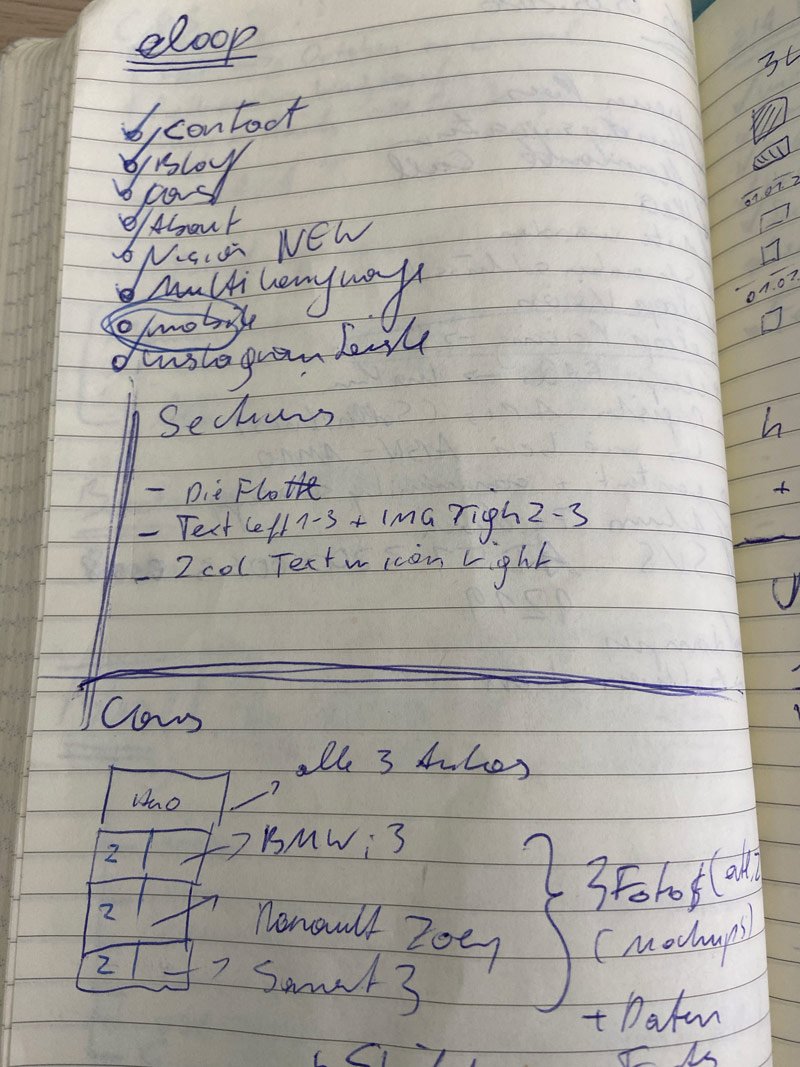 eloop
Contact
Blog
Cars
About
Vision NEW
Multilanguage
mobile
Instagram Leiste
Sections
- Die Flotte
- Text left 1-3 + IMG right 2-3
- 2 col Text w icon right
Cars
alle 3 Autos
2 BMW i3
2 Renault Zoey
2 Smart 3
3 Fotos
(Mockups)
+ Daten
01.01.2
01.01.
h
+